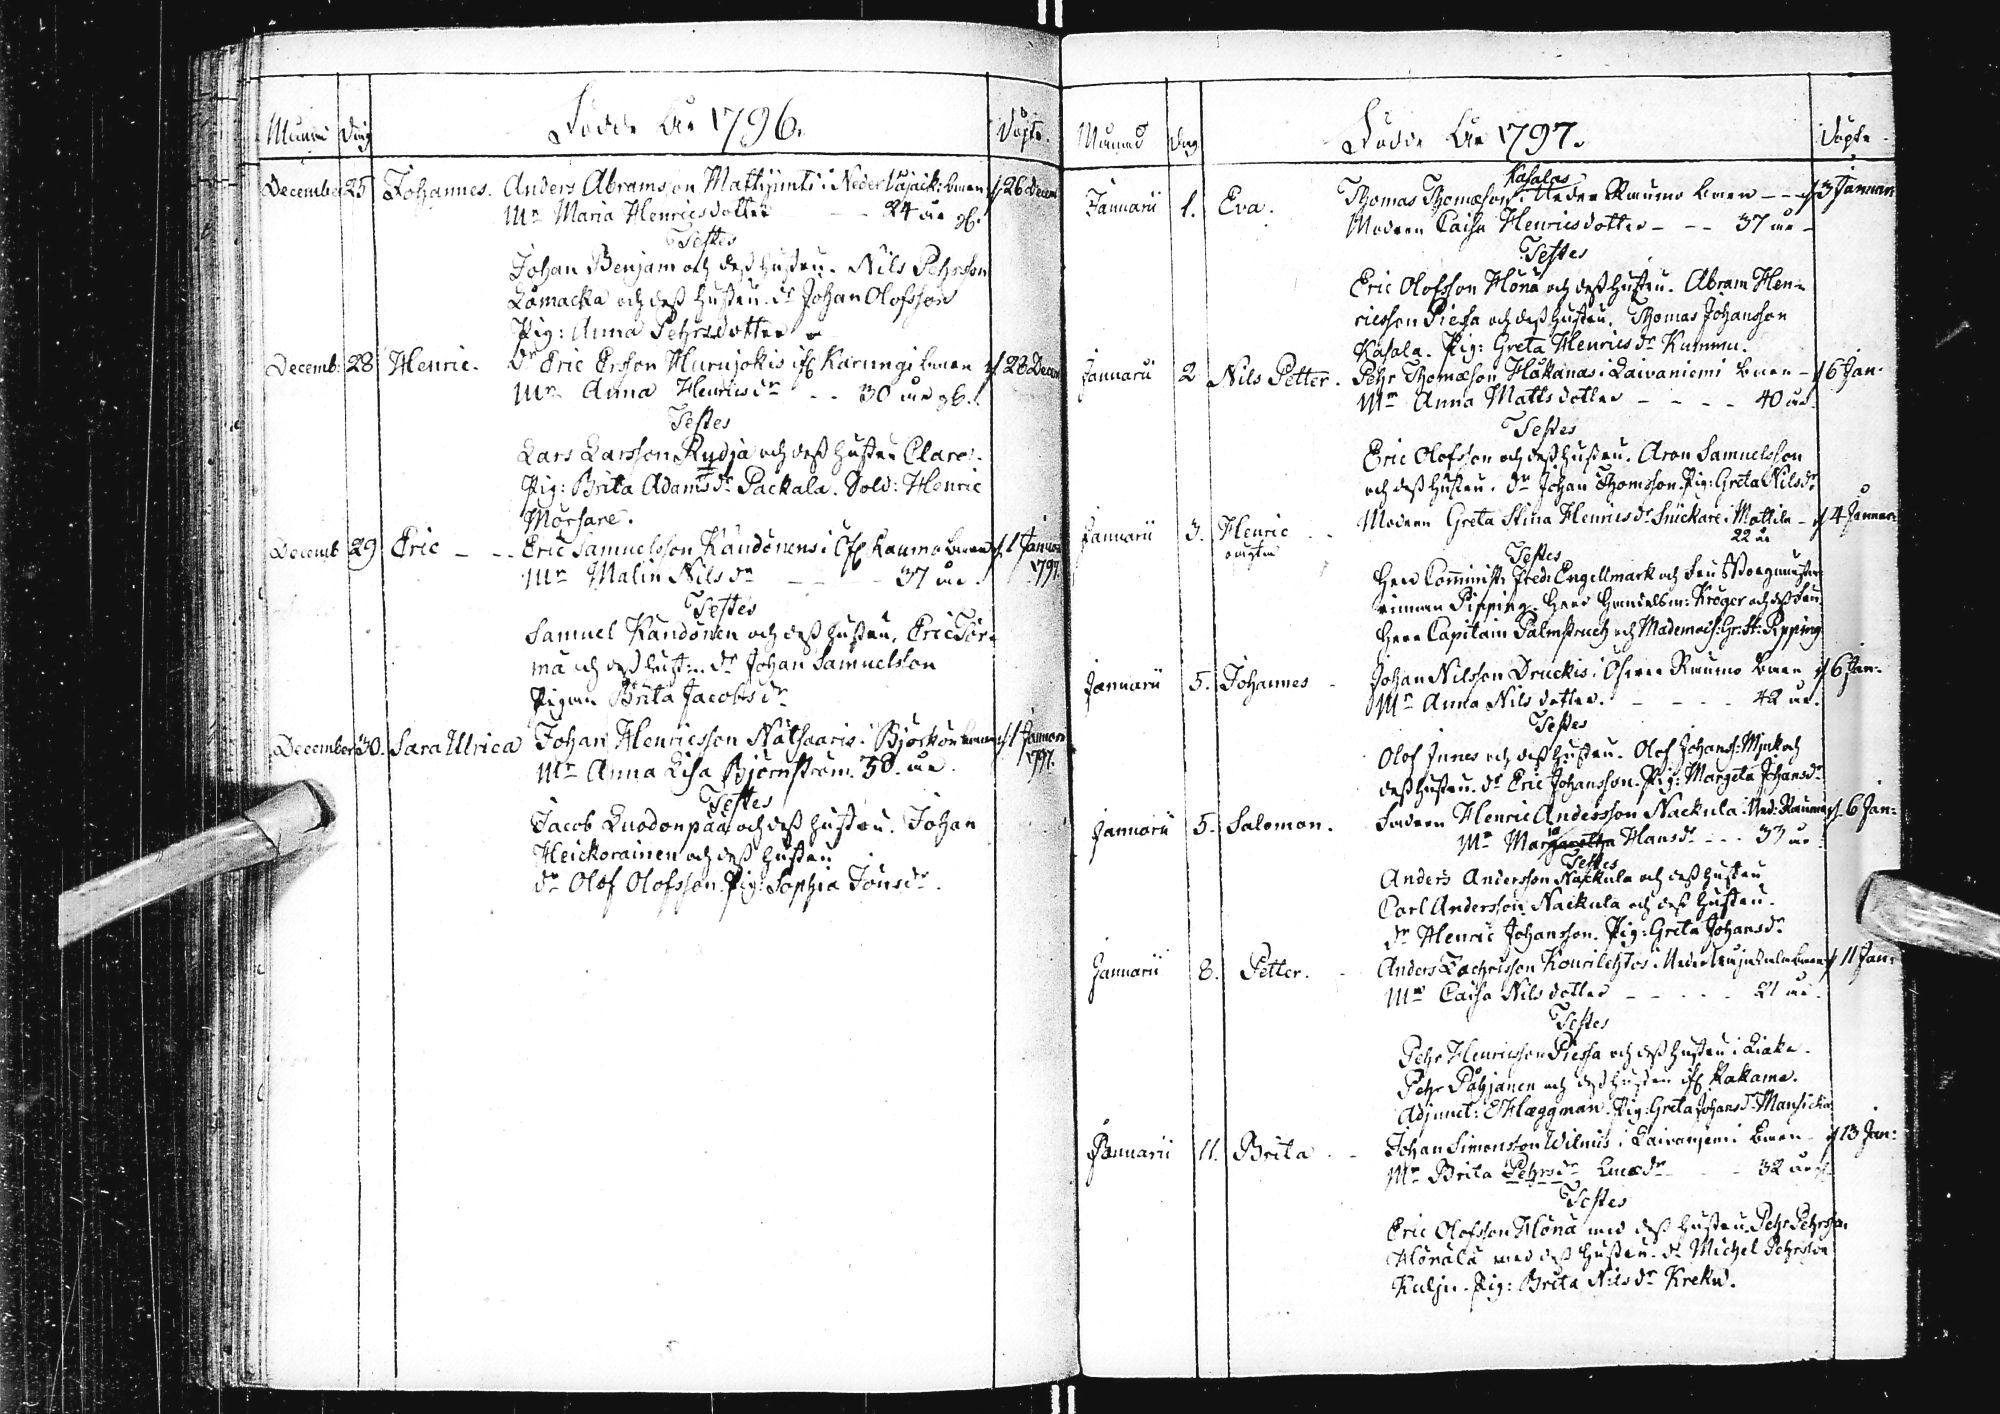 Månad Dag Födde År 1796. Döpte
December 25 Johannes. Anders Abramsson Mattijunti i Neder Wojack: barn d 26 Decem
Mr Maria Henricsdotter - - 24 år
Testes
Johan Benjam och deß hustru. Nils Pehrsson
Låmacka och deß hustru. dr Johan Olofsson
Pig: Anna Pehrsdotter
Decemb: 28 Henric. dr Eric Ersson Karungi barn d 28 Decem
Mr Anna Henricsdr - - 30 år
Testes
Lars Larsson Rudja och deß hustru Clara.
Pig: Brita Adamsdr Packala. Sold: Henric
Morsare.
Decemb 29 Eric - - Eric Samuelsson Kandonens i Öf Raumo barn d 1 Januar
Mr Malin Nilsdr - - 37 år. 1797.
Testes
Samuel Kandonen och deß hustru. Eric Tör-
mä och deß hustr. dr Johan Samuelsson
Pigan Brita Jacobsdr
December 30. Sara Ulrica Johan Henricsson Nätsaaris i Björckön barn d 1 Januari
Mr Anna Lisa Björnström. 38. år. 1797.
Testes
Jacob Luodonpää och deß hustru. Johan
Heickorainen och deß hustru
dr Olof Olofsson. Pig: Sophia Jonsdr.
Månad Dag Födde År 1797. Döpte
Kasalas
Januarii 1. Eva. Thomas Thomæson i Neder Raumo barn - - d 3 Januari
Modren Caisa Henricsdotter - - - 37 år -
Testes
Eric Olofsson Hona och deß hustru. Abram Hen-
ricsson Piessa och deß hustru. Thomas Johansson
Kasala. Pig: Greta Henricsdr Kummu.
Januarii 2 Nils Petter. Pehr Thomæson Håkanas i Laivaniemi barn - d 6 Jan.
Mr Anna Mattsdotter - - - - 40 år.
Testes
Eric Olofsson och deß hustru. Aron Samuelsson
och deß hustru. dr Johan Thomsson. Pig: Greta Nilsdr
Januarii 3. Henric - - Modren Greta Stina Henricsdr Snickare i Mattila - d 4 Januari
oägta 22 år
Testes
Herr Comminist: Fred: Engellmark och Fru Borgmästar-
innan Pipping. Herr Handelsm: Kröger och deß Fru
Herr Capitain Palmstruch och Mademois: Gr: St: Pipping
Januarii 5. Johannes - Johan Nilsson Druckis i Öfwer Raumo barn d 6 Jan.
Mr Anna Nilsdotter. - - - - 42 år.
Testes
Olof Junes och deß hustru. Olof Johanss: och
deß hustru. dr Eric Johansson. Pig: Margeta Johansdr
Januarii 5. Salomon. Fadren Henric Andersson Nackula i Ned: Raumo d. 6 Jan:
Mr Margaretha Hansdr - - - 33 år.
Testes
Anders Andersson Nackula och deß hustru
Carl Andersson Nackula och deß hustru.
dr Henric Johansson. Pig: Greta Johansdr
Januarii 8. Petter. - Anders Zachrisson Kourilehtos i barn d 11 Jan:
Mr Caisa Nilsdotter - - - - - 21 år.
Testes
Pehr Henricsson Piessa och deß hustru i Liaka.
Pehr Pohjanen och deß hustru if Kakama.
Adjunct: E Hæggman. Pig: Greta Johansdr Mansicka
Januarii 11. Brita - - Johan Simonsson Wilmis i Laivaniemi barn d 13 Jan:
Mr Brita Pehrsdr Lucædr - - - 32 år
Testes
Eric Olofsson Hona med deß hustru. Pehr Pehrsson
Honala med deß hustru. dr Michel Pehrsson
Kulju. Pig: Brita Nilsdr Kreku.